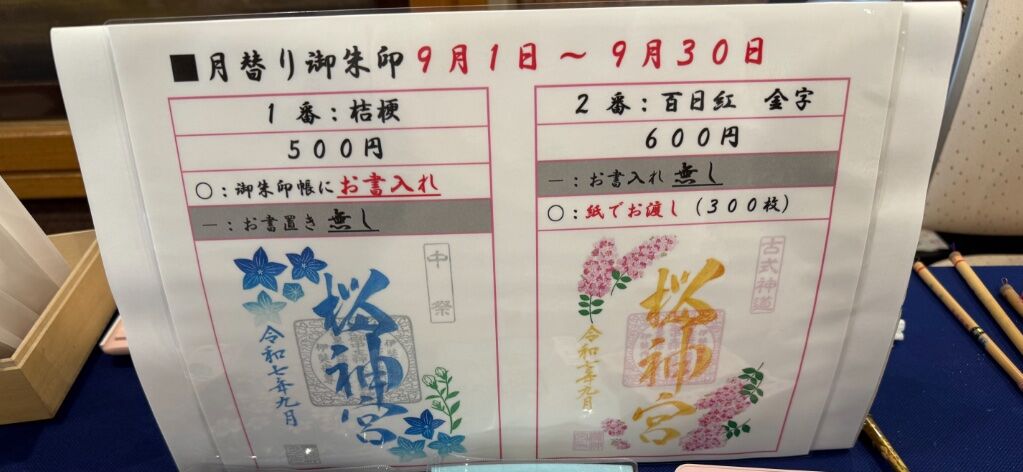 ■月替り御朱印 9月1日～9月30日
1 番：桔梗
500円
○：御朱印帳にお書入れ
－：お書置き 無し
中祭
桜神宮
令和七年九月
2 番：百日紅 金字
600円
－：お書入れ 無し
○：紙でお渡し（300枚）
古式神道
桜神宮
令和七年九月